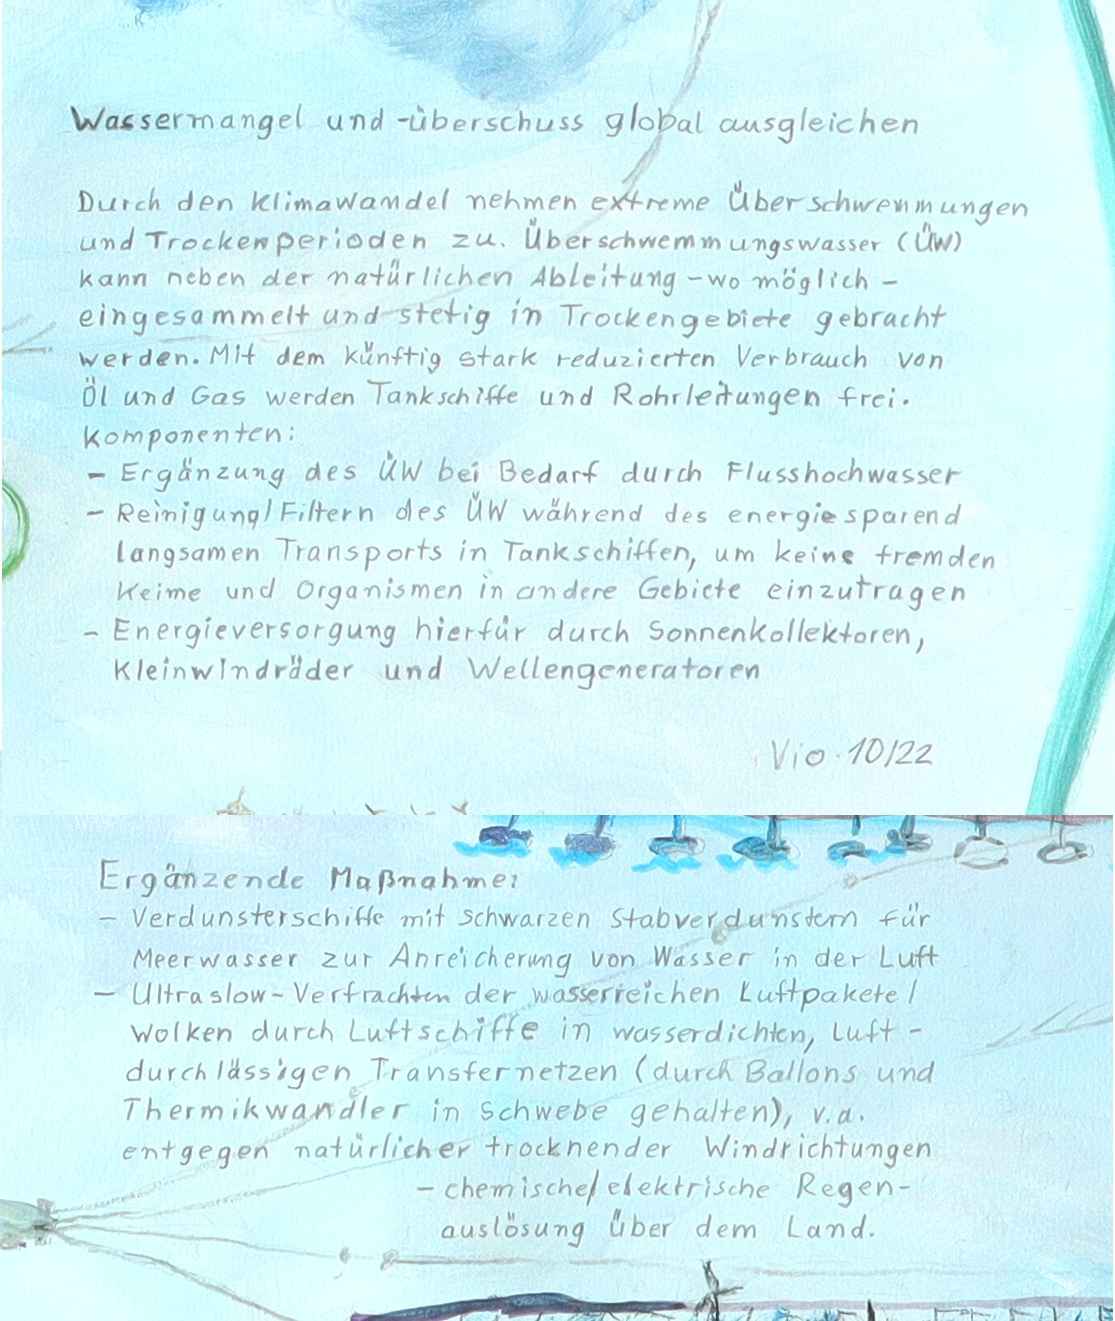 Wassermangel und -überschuss global ausgleichen
Durch den Klimawandel nehmen extreme Überschwemmungen
und Trockenperioden zu. Überschwemmungswasser (ÜW)
kann neben der natürlichen Ableitung - wo möglich -
eingesammelt und stetig in Trockengebiete gebracht
werden. Mit dem künftig stark reduzierten Verbrauch von
Öl und Gas werden Tankschiffe und Rohrleitungen frei.
Komponenten:
- Ergänzung des ÜW bei Bedarf durch Flusshochwasser
- Reinigung/Filtern des ÜW während des energiesparend
langsamen Transports in Tankschiffen, um keine fremden
Keime und Organismen in andere Gebiete einzutragen
- Energieversorgung hierfür durch Sonnenkollektoren,
Kleinwindräder und Wellengeneratoren
Vio 10/22
Ergänzende Maßnahme:
- Verdunsterschiffe mit schwarzen Stabverdunstern für
Meerwasser zur Anreicherung von Wasser in der Luft
- Ultraslow-Verfrachten der wasserreichen Luftpakete/
Wolken durch Luftschiffe in wasserdichten, luft-
durchlässigen Transfernetzen (durch Ballons und
Thermikwandler in Schwebe gehalten), v.a.
entgegen natürlicher trocknender Windrichtungen
- chemische/elektrische Regen-
auslösung über dem Land.